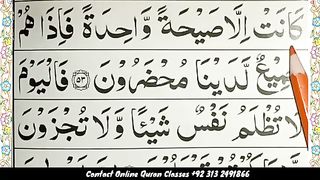 كَانَتْ اِلَّا صَيْحَةً وَّاحِدَةً فَاِذَا هُمْ
لَّدَيْنَا مُحْضَرُوْنَ ﴿۵۳﴾ فَالْيَوْمَ
لَا تُظْلَمُ نَفْسٌ شَيْـًٔا وَّلَا تُجْزَوْنَ
Contact Online Quran Classes +92 313 2491866